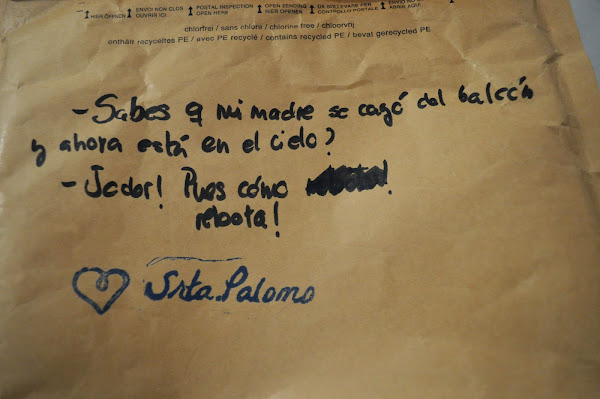 HIER ÖFFNEN
ENVOI NON CLOS
OUVRIR ICI
POSTAL INSPECTION
OPEN HERE
OPEN ZENDING
HIER OPENEN
CONTROLLO POSTALE
ABRIR AQUI
chlorfrei / sans chlore / chlorine free / chloorvrij
enthält recyceltes PE / avec PE recyclé / contains recycled PE / bevat gerecycled PE
- Sabes q mi madre se cayó del balcón
y ahora está en el cielo?
- Joder! Pues cómo
rebota!
Srta. Palomo